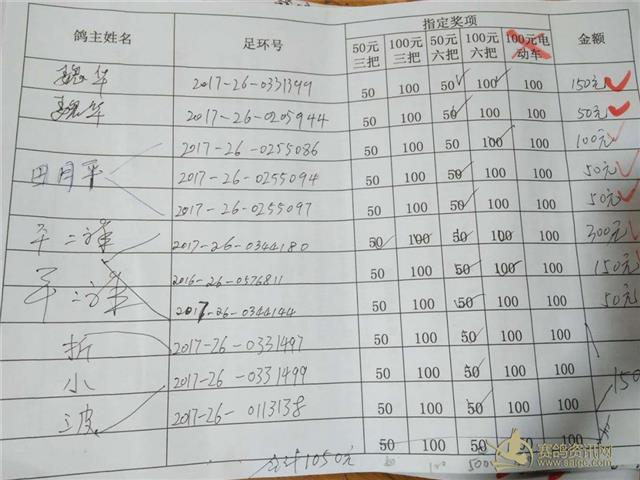 指定奖项
鸽主姓名 足环号 50元三把 100元三把 50元六把 100元六把 100元电动车 金额
魏华 2017-26-0331399 50 100 50 100 100 150元
魏华 2017-26-0205944 50 100 50 100 100 50元
2017-26-0255086 50 100 50 100 100 100元
田月平 2017-26-0255094 50 100 50 100 100 50元
2017-26-0255097 50 100 50 100 100 50元
2017-26-0344180 50 100 50 100 100 300元
2016-26-0576811 50 100 50 100 100 150元
2017-26-0344144 50 100 50 100 100 50元
折 2017-26-0331497 50 100 50 100 100
小 2017-26-0331499 50 100 50 100 100 150
2017-26-0113138 50 100 50 100 100
50 100 50 100 100
合计1050元
赛鸽资讯网
www.saige.com